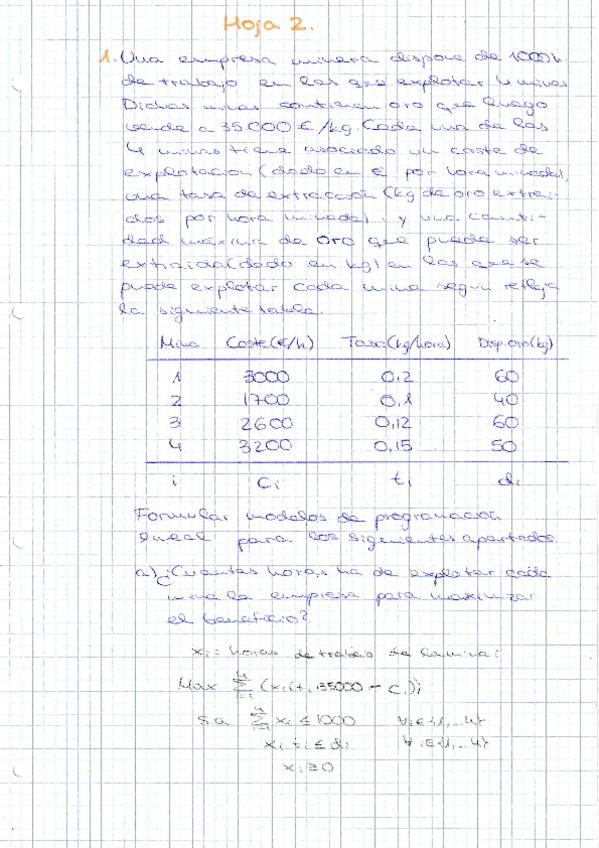 Hoja 2.
1. Una empresa minera dispone de 1000h
de trabajo en las que explotar 4 minas
Dichas minas contienen oro que luego
vende a 35.000 €/kg. Cada una de las
4 minas tiene asociado un coste de
explotación (dado en € por hora minada),
una tasa de extracción (kg de oro extraí-
dos por hora minada), y una canti-
dad máxima de oro que puede ser
extraída (dado en kg) en las que se
puede explotar cada mina según refleja
la siguiente tabla.
Mina Coste (€/h) Tasa (kg/hora) Disp. oro (kg)
1 3000 0,2 60
2 1700 0,1 40
3 2600 0,12 60
4 3200 0,15 50
i ci ti di
Formular modelos de programación
lineal para los siguientes apartados.
a) ¿Cuántas horas ha de explotar cada
mina la empresa para maximizar
el beneficio?
xi = horas de trabajo de la mina i
Max Σ (xi (ti 35000 - ci))
s.a Σ xi ≤ 1000 ∀i∈{1,..4}
xi ti ≤ di ∀i∈{1,..4}
xi ≥ 0